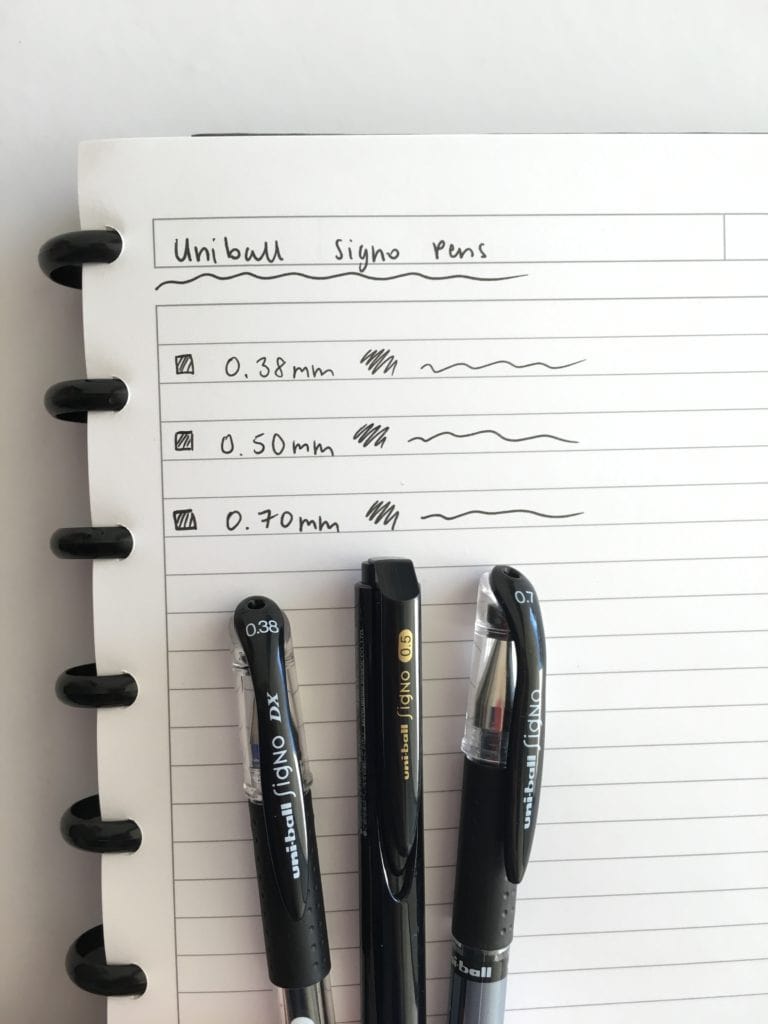 Uniball Signo Pens
0.38mm
0.50mm
0.70mm
0.38
uni-ball SigNo DX
uni-ball SigNo 0.5
0.7
uni-ball SigNo
uni-ball